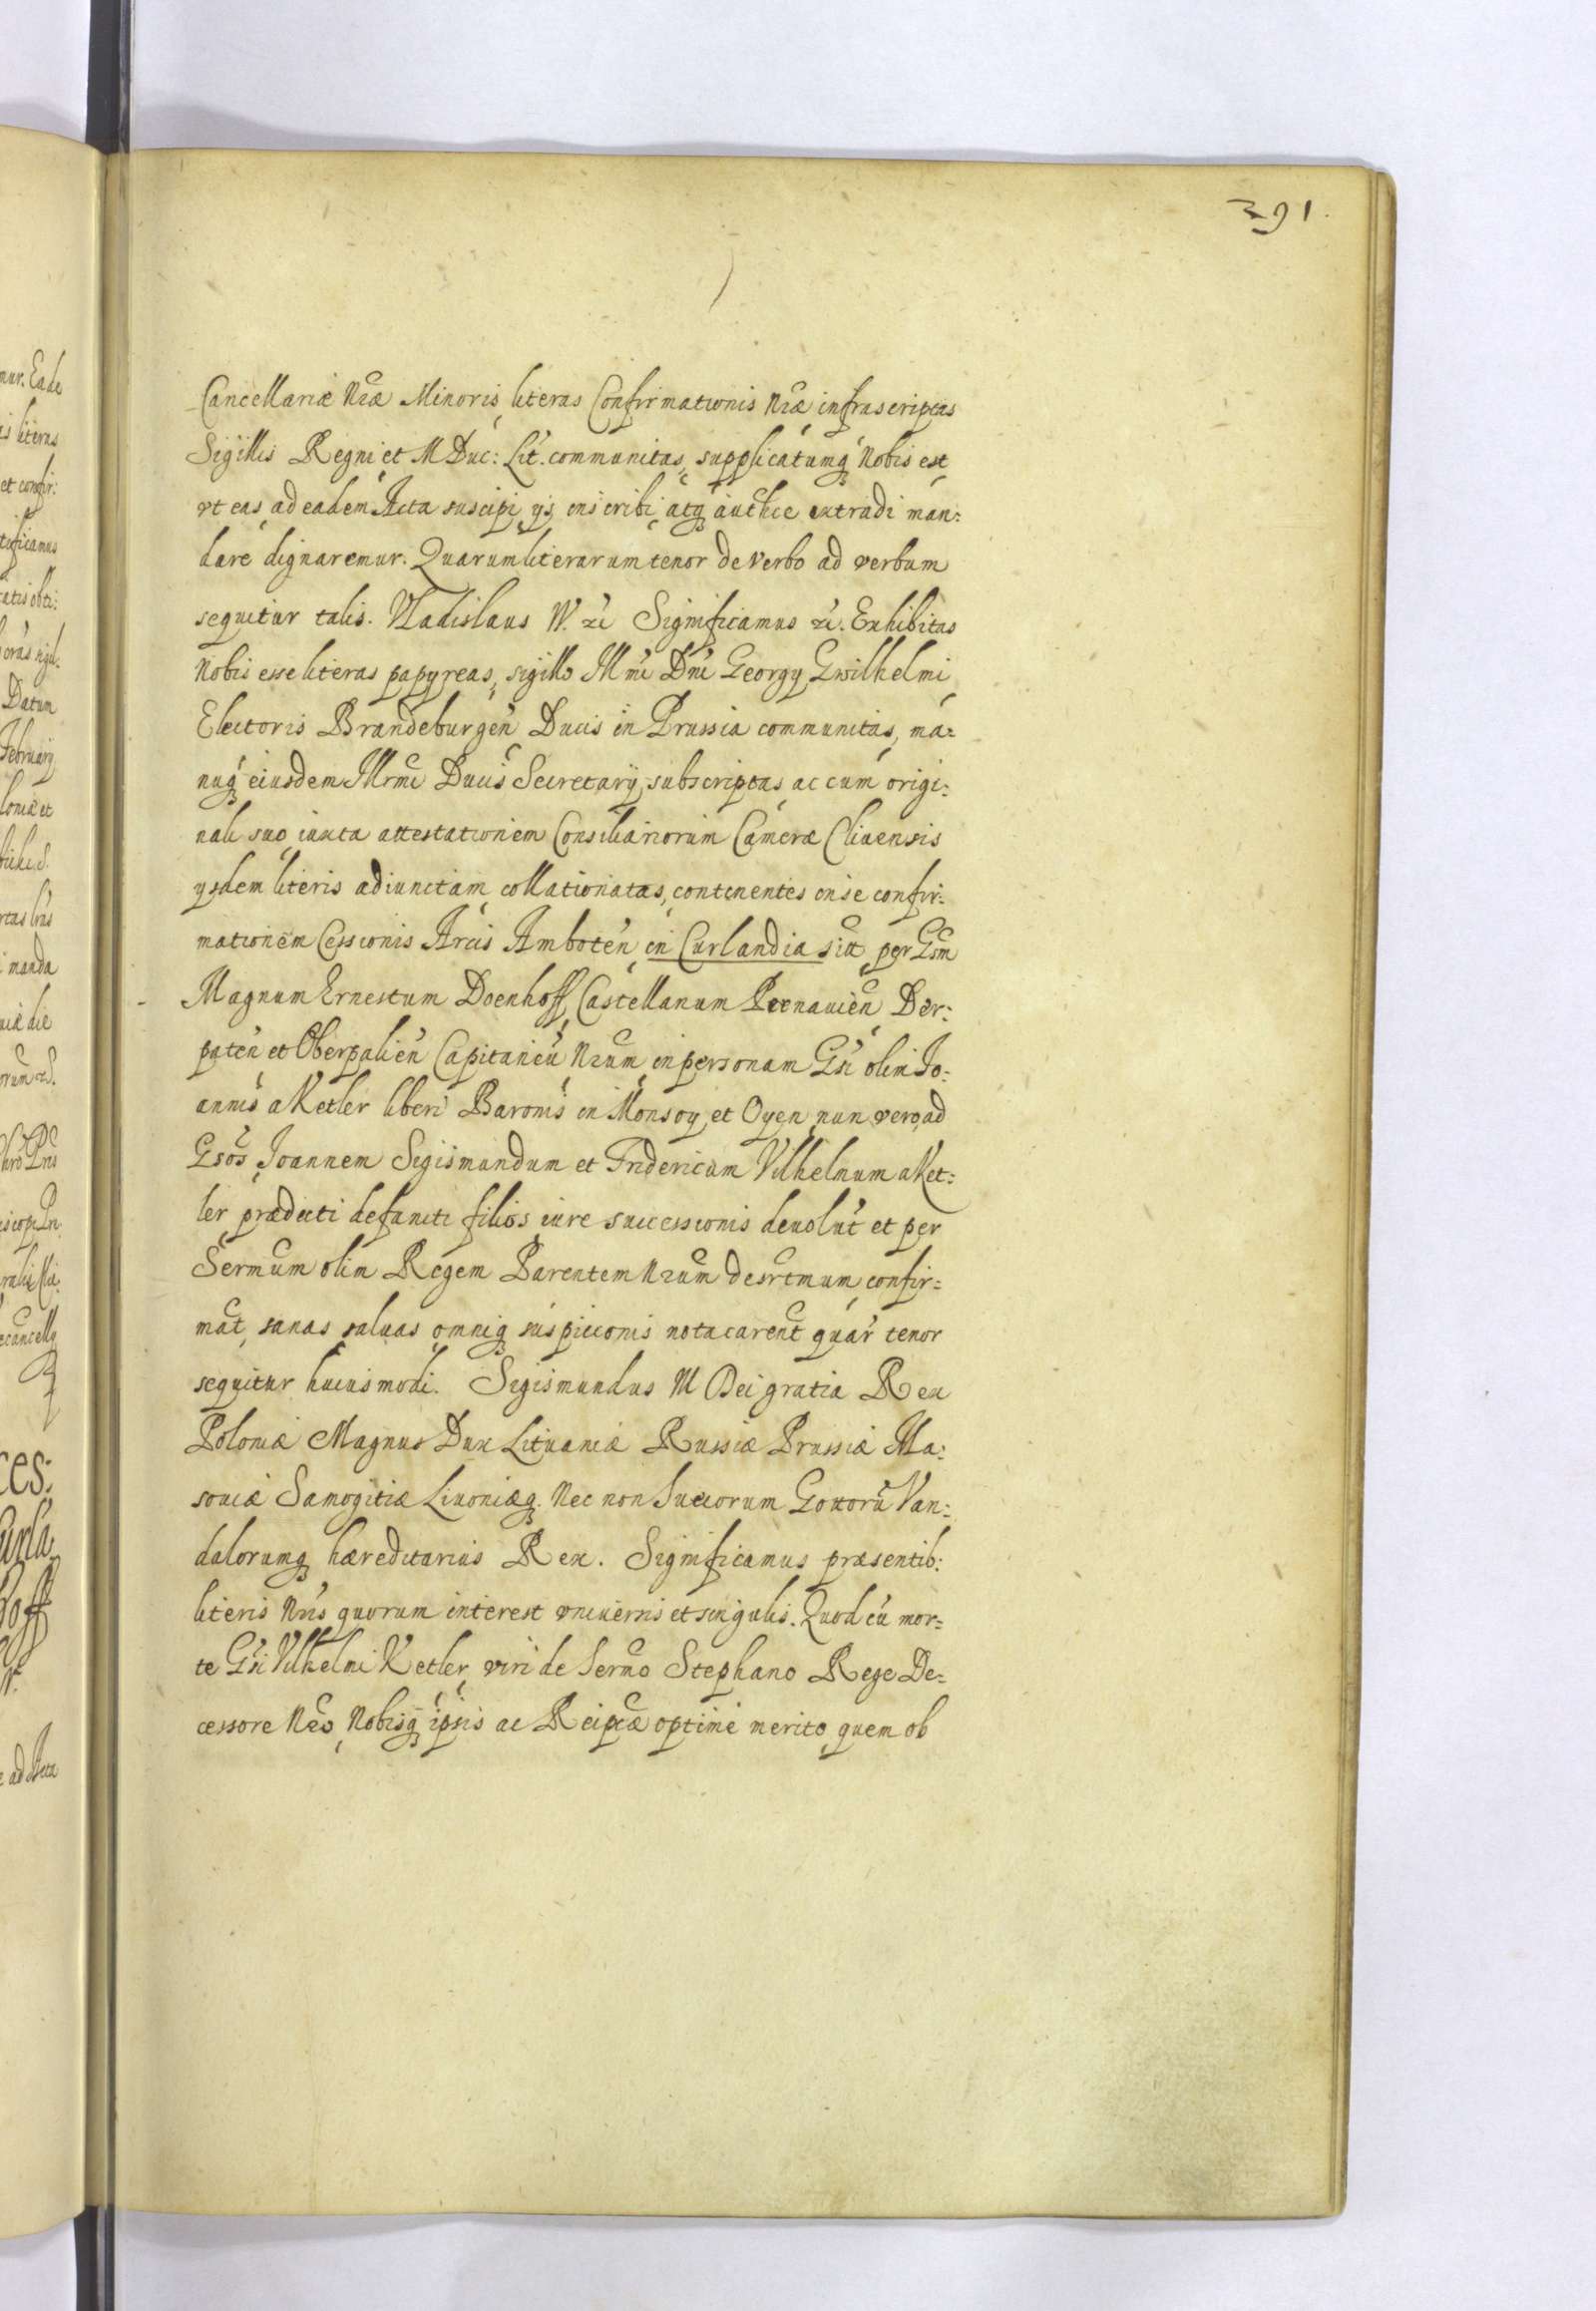 391.
Cancellariæ Nræ Minoris, literas Confirmationis Nræ infrascriptas
Sigillis Regni et M Duc: Lit. communitas, supplicatumq Nobis est
vt eas ad eadem Acta suscipi ijs inscribi atq authce extradi man:
dare dignaremur. Quarum literarum tenor de verbo ad verbum
sequitur talis. Vladislaus IV. etc Significamus etc. Exhibitas
Nobis esse literas papyreas, sigillo Illmi Dni Georgy Gwilhelmi
Electoris Brandeburgen Ducis in Prussia communitas, ma=
nuq eiusdem Illrmi Ducis Secretarij subscriptas ac cum origi:
nali suo iuxta attestationem Consiliariorum Cameræ Cliuensis
ysdem literis adiunctam collationatas, continentes in se confir:
mationem Cessionis Arcis Amboten in Curlandia sitt per Gsm
Magnum Ernestum Doenhoff, Castellanum Pernauien Der:
paten et Oberpalien Capitaneu Nrum in personam Gsi olim Jo:
annis a Ketler liberi Baronis in Monsoy et Oyen nun vero, ad
Gsos Joannem Sigismundum et Fridericum Vilhelmum a Ket:
ler prædicti defuncti filios iure successionis deuolut et per
Sermum olim Regem Parentem Nrum desrtmum confir=
mat, sanas saluas omniq suspicionis nota carent quar tenor
sequitur huiusmodi. Sigismundus III Dei gratia Rex
Poloniæ Magnus Dux Lituaniæ Russiæ Prussiæ Ma:
souiæ Samogitiæ Liuoniæq. Nec non Suecorum Gottoru Van:
dalorumq hæreditarius Rex. Significamus præsentib:
literis Nris quorum interest vniuersis et singulis. Quod cu mor=
te Gsi Vilhelmi Ketler, viri de Sermo Stephano Rege De=
cessore Nro, Nobisq ipsis ac Reipcæ optime merito quem ob